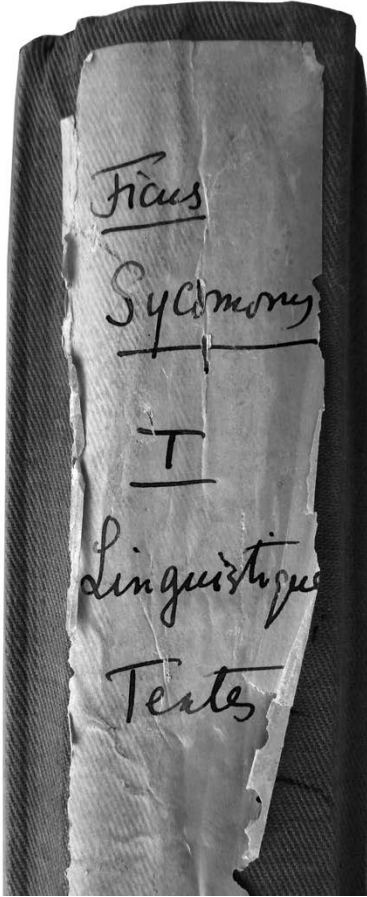 Ficus
Sycomorus
I
Linguistique
Textes